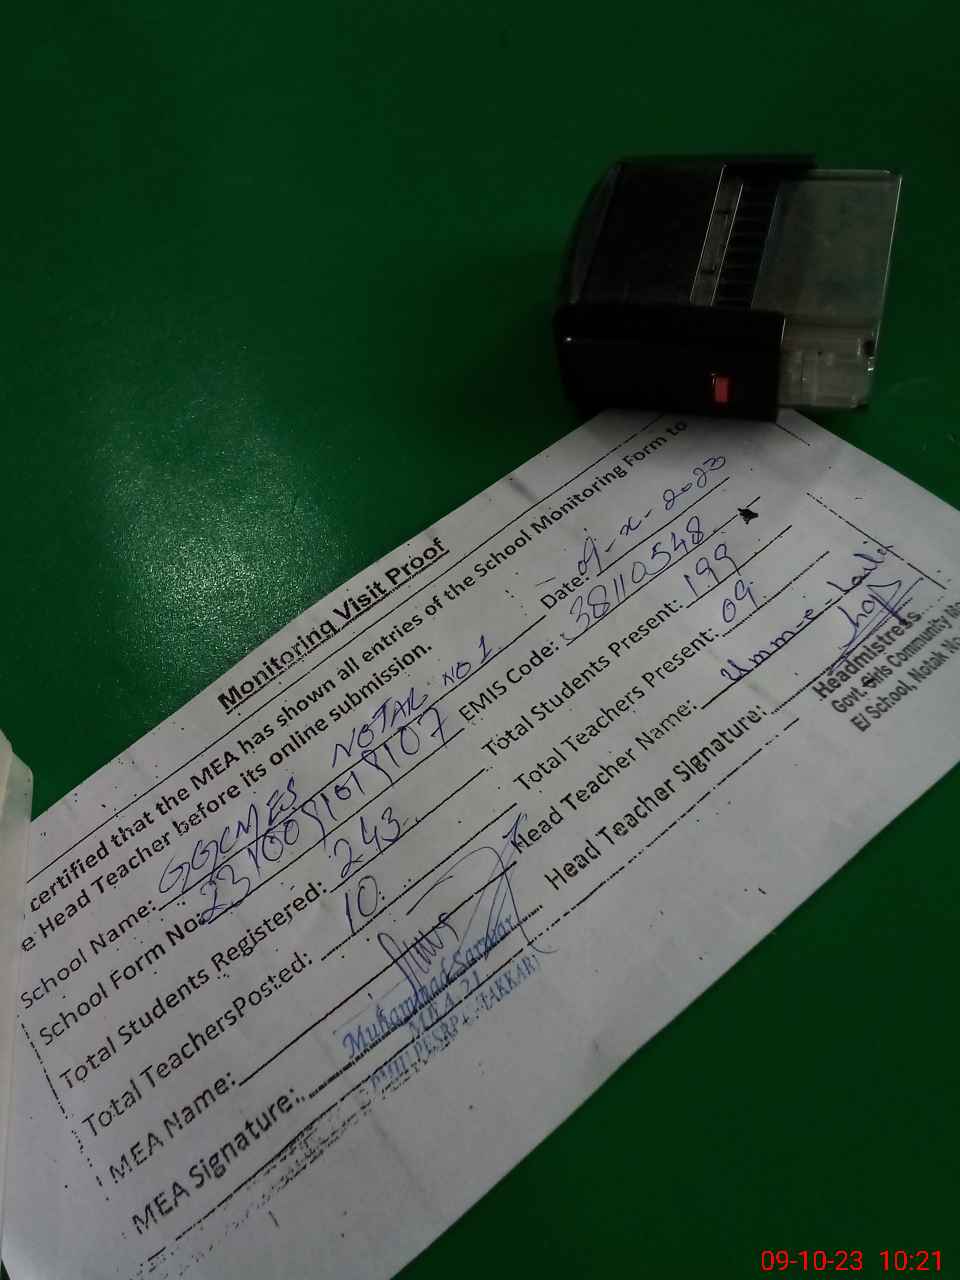 Monitoring Visit Proof
certified that the MEA has shown all entries of the School Monitoring Form to
e Head Teacher before its online submission.
Date: 09-X-2023
School Name: GGCMES NOTAK NO 1 EMIS Code: 38110548
School Form No: Total Students Present: 199
Total Students Registered: 243 Total Teachers Present: 09
Total TeachersPosted: 10 Head Teacher Name: Umm-e-Laila
MEA Name: Head Teacher Signature:
MEA Signature:
Muhammad Sarwar
MEA 21
PMIU PESRP
Headmistress
Govt. Girls Community
El School, Notak No
09-10-23 10:21